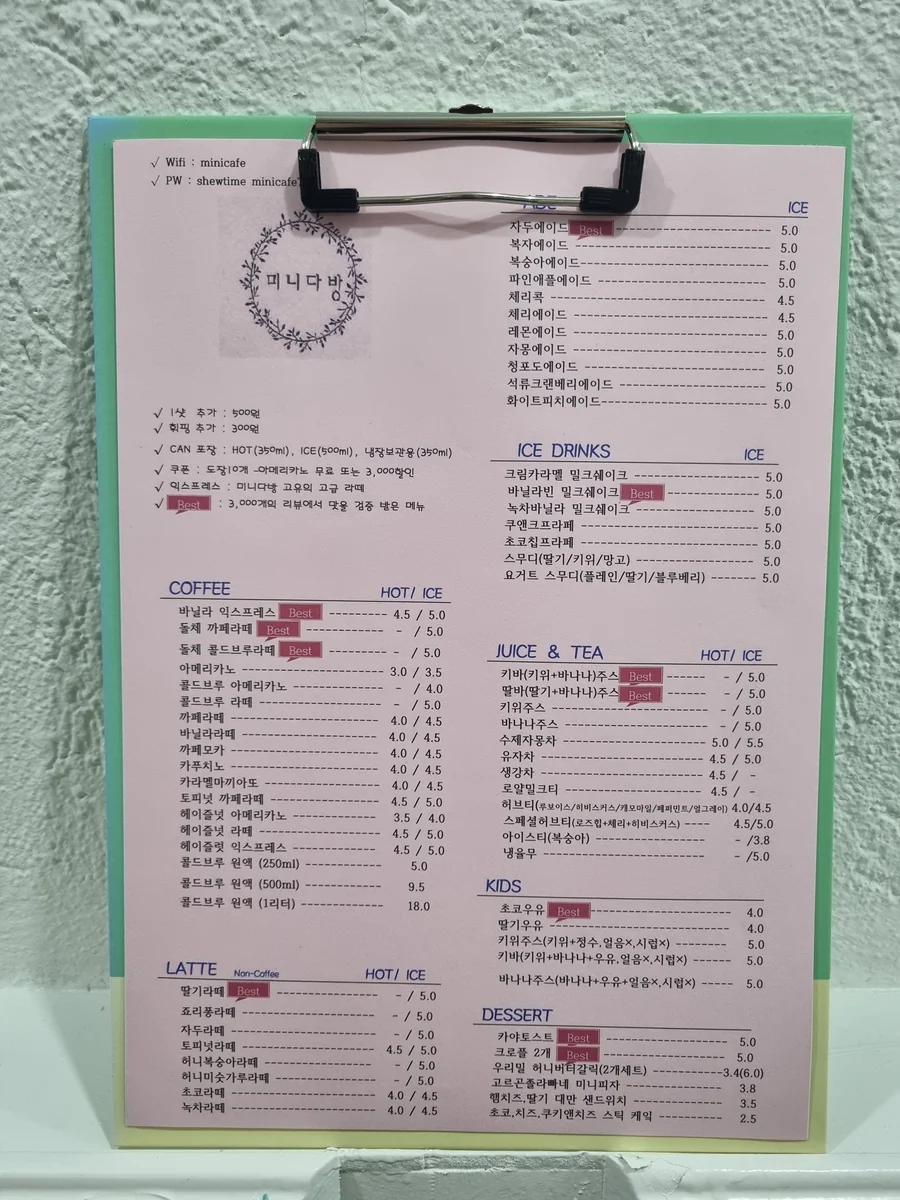 √ Wifi : minicafe
√ PW : shewtime minicafe
미니다방
√ 1샷 추가 : 500원
√ 휘핑 추가 : 300원
√ CAN 포장 : HOT(350ml), ICE(500ml), 냉장보관용(350ml)
√ 쿠폰 : 도장10개 -아메리카노 무료 또는 3,000할인
√ 익스프레스 : 미니다방 고유의 고급 라떼
√ Best : 3,000개의 리뷰에서 맛을 검증 받은 메뉴
COFFEE HOT/ ICE
바닐라 익스프레스 Best ---------- 4.5 / 5.0
돌체 까페라떼 Best ---------- - / 5.0
돌체 콜드브루라떼 Best ---------- - / 5.0
아메리카노 ---------- 3.0 / 3.5
콜드브루 아메리카노 ---------- - / 4.0
콜드브루 라떼 ---------- - / 5.0
까페라떼 ---------- 4.0 / 4.5
바닐라라떼 ---------- 4.0 / 4.5
까페모카 ---------- 4.0 / 4.5
카푸치노 ---------- 4.0 / 4.5
카라멜마끼아또 ---------- 4.0 / 4.5
토피넛 까페라떼 ---------- 4.5 / 5.0
헤이즐넛 아메리카노 ---------- 3.5 / 4.0
헤이즐넛 라떼 ---------- 4.5 / 5.0
헤이즐럿 익스프레스 ---------- 4.5 / 5.0
콜드브루 원액 (250ml) ---------- 5.0
콜드브루 원액 (500ml) ---------- 9.5
콜드브루 원액 (1리터) ---------- 18.0
LATTE Non-Coffee HOT/ ICE
딸기라떼 Best ---------- - / 5.0
죠리퐁라떼 ---------- - / 5.0
자두라떼 ---------- - / 5.0
토피넛라떼 ---------- 4.5 / 5.0
허니복숭아라떼 ---------- - / 5.0
허니미숫가루라떼 ---------- - / 5.0
초코라떼 ---------- 4.0 / 4.5
녹차라떼 ---------- 4.0 / 4.5
ICE
자두에이드 Best ---------- 5.0
복자에이드 ---------- 5.0
복숭아에이드 ---------- 5.0
파인애플에이드 ---------- 5.0
체리콕 ---------- 4.5
체리에이드 ---------- 4.5
레몬에이드 ---------- 5.0
자몽에이드 ---------- 5.0
청포도에이드 ---------- 5.0
석류크랜베리에이드 ---------- 5.0
화이트피치에이드 ---------- 5.0
ICE DRINKS ICE
크림카라멜 밀크쉐이크 ---------- 5.0
바닐라빈 밀크쉐이크 Best ---------- 5.0
녹차바닐라 밀크쉐이크 ---------- 5.0
쿠앤크프라페 ---------- 5.0
초코칩프라페 ---------- 5.0
스무디(딸기/키위/망고) ---------- 5.0
요거트 스무디(플레인/딸기/블루베리) ------- 5.0
JUICE & TEA HOT/ ICE
키바(키위+바나나)주스 Best ------ - / 5.0
딸바(딸기+바나나)주스 Best ------ - / 5.0
키위주스 ---------- - / 5.0
바나나주스 ---------- - / 5.0
수제자몽차 ---------- 5.0 / 5.5
유자차 ---------- 4.5 / 5.0
생강차 ---------- 4.5 / -
로얄밀크티 ---------- 4.5 / -
허브티(루보이스/히비스커스/캐모마일/페퍼민트/얼그레이) 4.0/4.5
스페셜허브티(로즈힙+체리+히비스커스) ---- 4.5/5.0
아이스티(복숭아) ---------- - /3.8
냉율무 ---------- - /5.0
KIDS
초코우유 Best ---------- 4.0
딸기우유 ---------- 4.0
키위주스(키위+정수,얼음×,시럽×) -------- 5.0
키바(키위+바나나+우유,얼음×,시럽×) ------ 5.0
바나나주스(바나나+우유+얼음×,시럽×) ----- 5.0
DESSERT
카야토스트 Best ---------- 5.0
크로플 2개 Best ---------- 5.0
우리밀 허니버터갈릭(2개세트) ----------3.4(6.0)
고르곤졸라빠네 미니피자 ---------- 3.8
햄치즈.딸기 대만 샌드위치 ---------- 3.5
초코.치즈.쿠키앤치즈 스틱 케익 ---------- 2.5